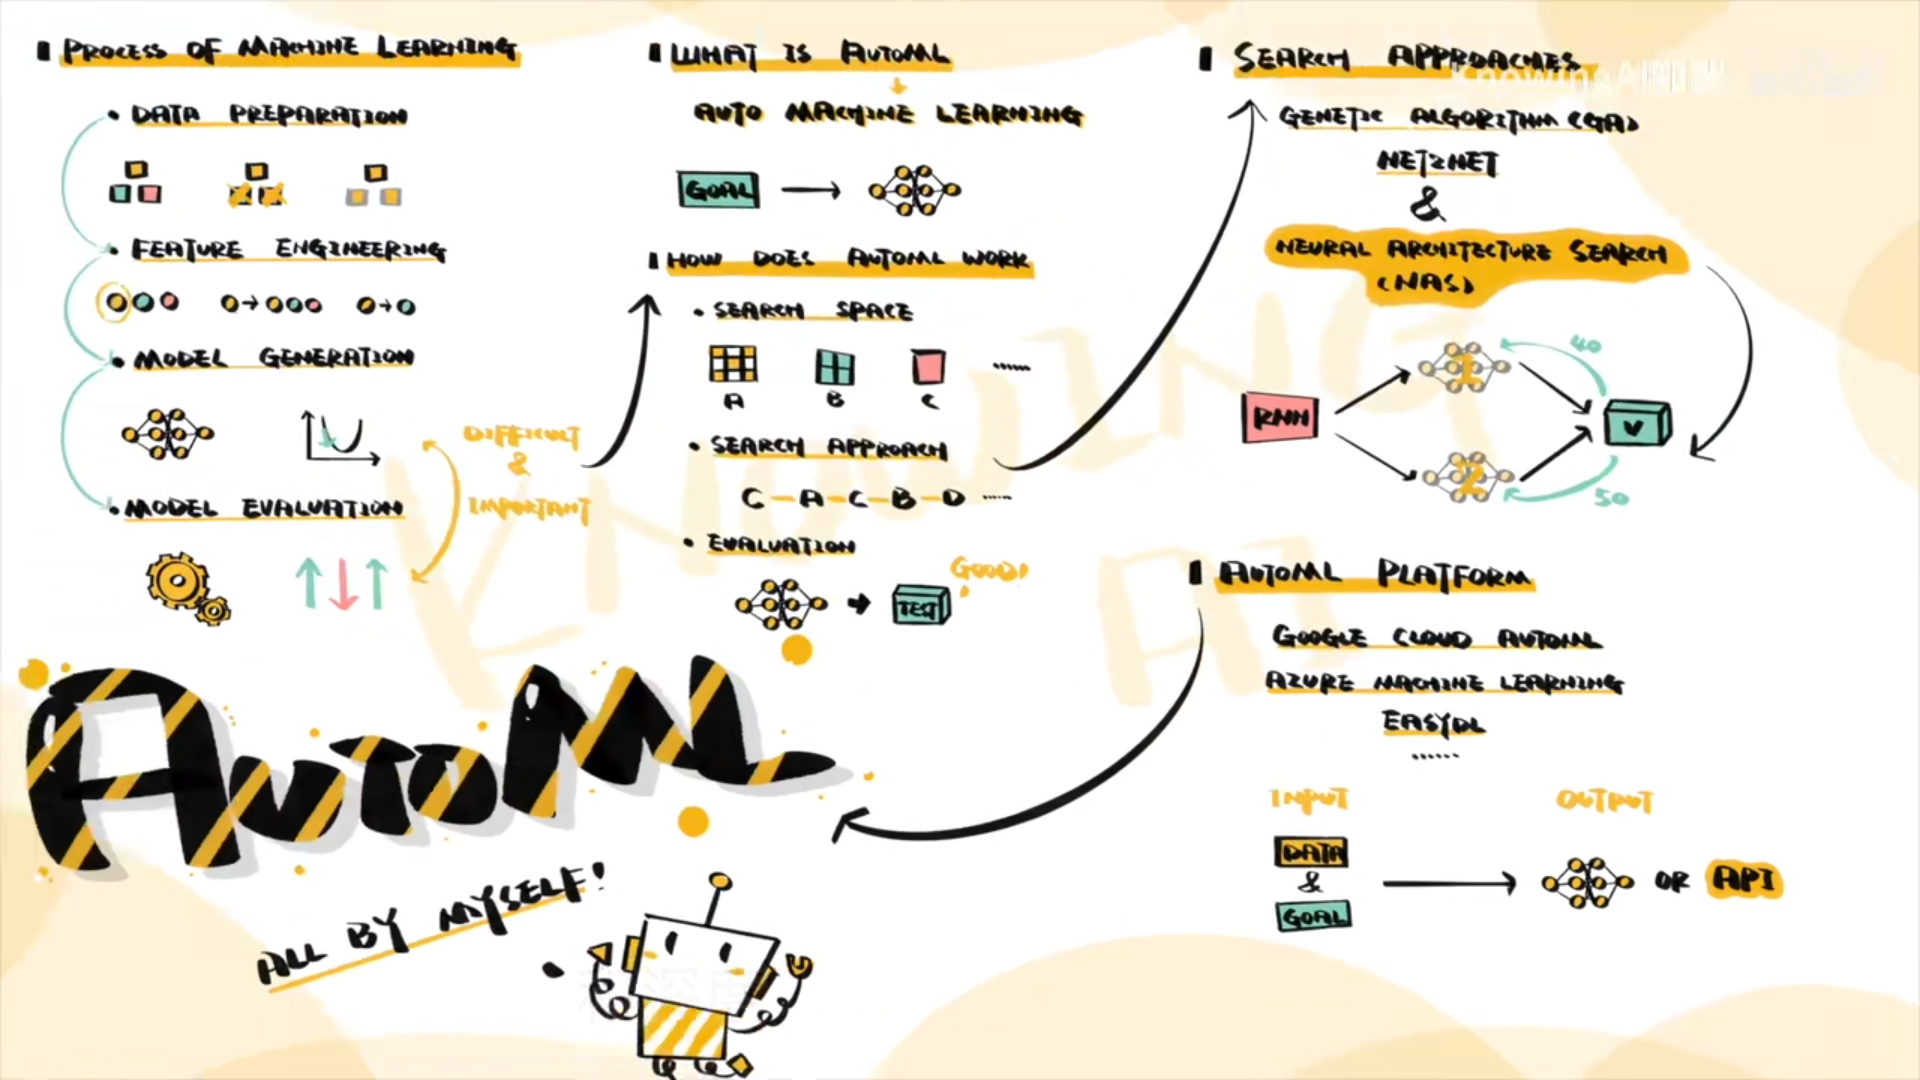 PROCESS OF MACHINE LEARNING
• DATA PREPARATION
• FEATURE ENGINEERING
• MODEL GENERATION
DIFFICULT
&
IMPORTANT
• MODEL EVALUATION
WHAT IS AUTOML
AUTO MACHINE LEARNING
GOAL
HOW DOES AUTOML WORK
• SEARCH SPACE
A B C ......
• SEARCH APPROACH
C-A-C-B-D ......
• EVALUATION
TEST
GOOD!
SEARCH APPROACHES
GENETIC ALGORITHM (GA)
NET2NET
&
NEURAL ARCHITECTURE SEARCH
(NAS)
RNN
1
2
V
40
50
AUTOML PLATFORM
GOOGLE CLOUD AUTOML
AZURE MACHINE LEARNING
EASYDL
......
INPUT
DATA
&
GOAL
OUTPUT
OR API
AUTOML
ALL BY MYSELF!
KNOWING
AI
KnowingAI